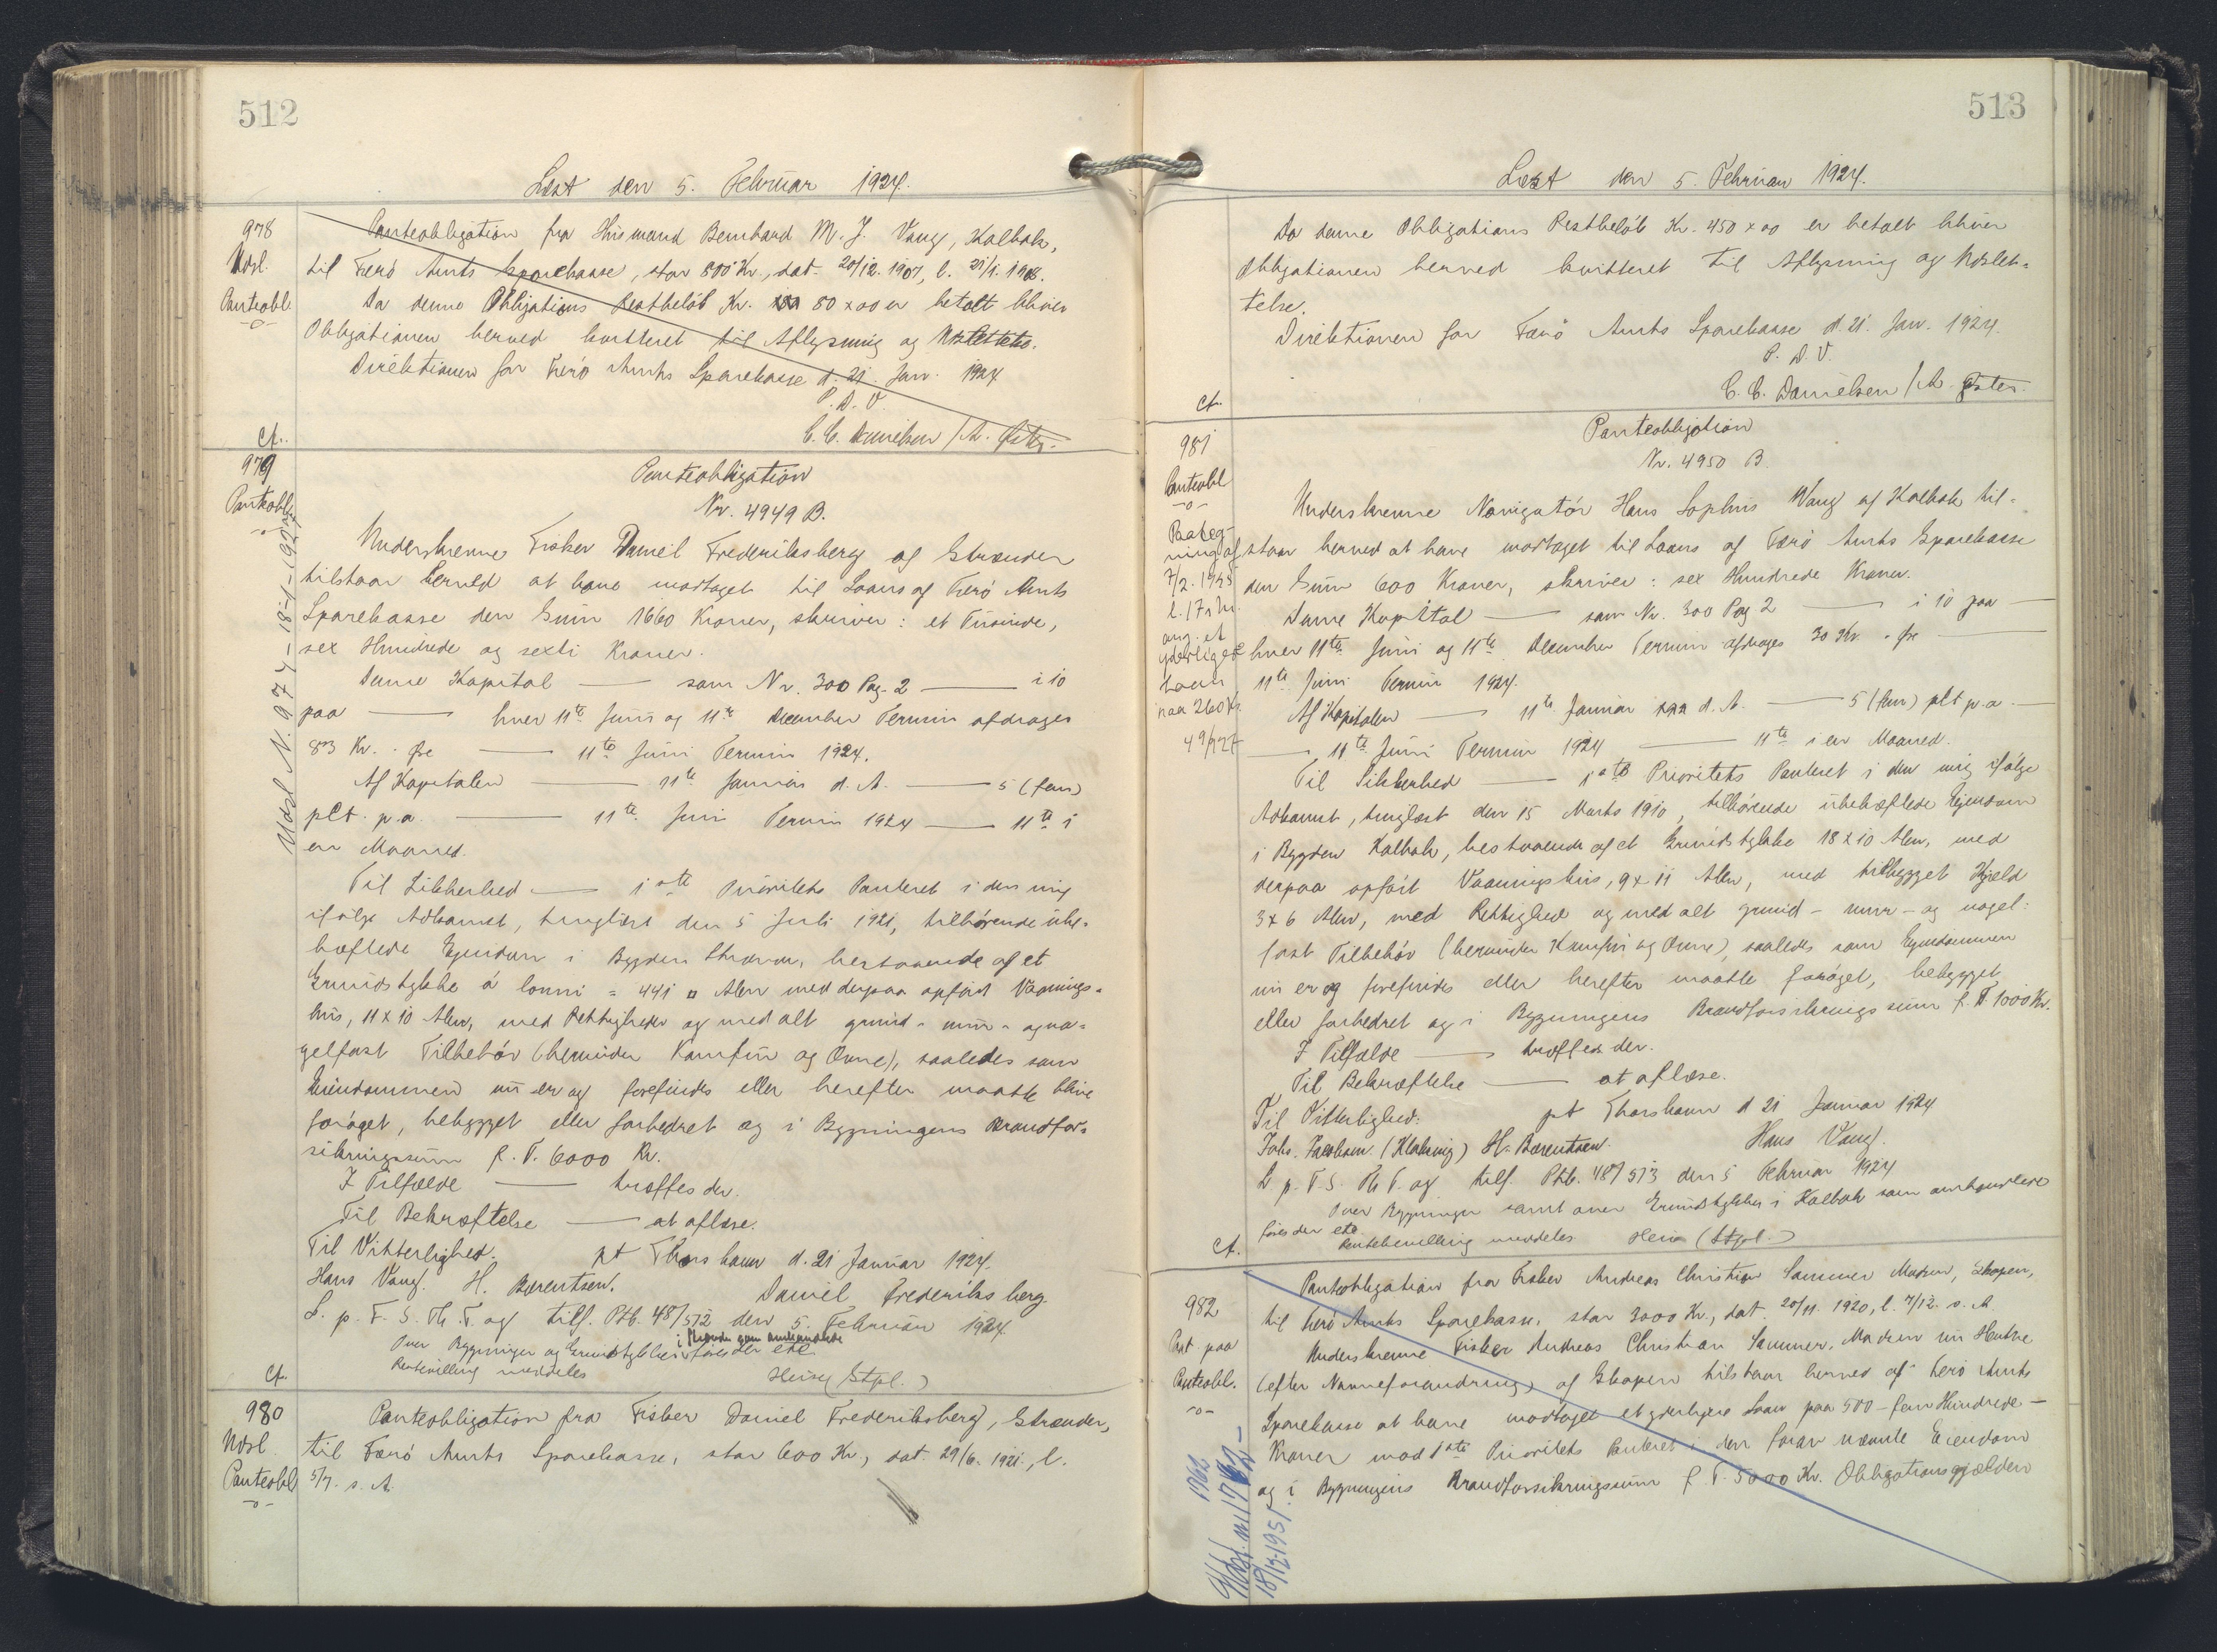 512
Læst den 5. Februar 1924.
978
Udsl.
Panteobl.
-o-
Panteobligation fra Huismand Bernhard M. J. Vang, Kalbak,
til Færö Amts Sparekasse, stor 800 Kr., dat. 20/12. 1907, l. 21/1. 1908.
Da denne Obligations Restbeløb Kr. 80 x 00 er betalt bliver
Obligationen herved kvitteret til Aflysning og Udslettelse.
Direktionen for Færö Amts Sparekasse d. 21. Jan. 1924
P. D. V.
C. C. Danielsen / A. Öster.
Ct.
979
Panteobl.
-o-
Udsl. N. 974 - 18-1-1927
Panteobligation
Nr. 4949 B.
Underskrevne Fisker Daniel Frederiksberg af Strænder
tilstaar herved at have modtaget til Laans af Færö Amts
Sparekasse den Sum 1660 Kroner, skriver: et Tusinde,
sex Hundrede og sexti Kroner.
Denne Kapital — som Nr. 300 Pag. 2 — i 10
paa — hver 11te Juni og 11te December Termin afdrages
83 Kr. - Øre — 11te Juni Termin 1924.
Af Kapitalen — 11te Januar d. A. — 5 (fem)
pCt. p.a. — 11te Juni Termin 1924 — 11te i
en Maaned.
Til Sikkerhed — 1ste Prioritets Panteret i den mig
ifølge Adkomst, tinglæst den 5 Juli 1921, tilhørende ube-
hæftede Ejendom i Bygden Strænder, bestaaende af et
Grundstykke á lonni = 441 □ Alen med derpaa opført Vaanings-
hus, 11 x 10 Alen, med Rettigheder og med alt grund- mur- og na-
gelfast Tilbehør (herunder Komfur og Ovne), saaledes som
Ejendommen nu er og forefindes eller herefter maatte blive
forøget, bebygget eller forbedret og i Bygningens Brandfor-
sikringssum f. T. 6000 Kr.
I Tilfælde — træffes der.
Til Bekræftelse — at aflæse.
Til Vitterlighed. pt Thorshavn d. 21 Januar 1924.
Hans Vang. H. Bærentsen. Daniel Frederiksberg.
L. p. F. S. Th. T. og tilf. Ptb. 48/512 den 5. Februar 1924.
i Strænder som anmeldende
Over Bygninger og Grundstykker føres der ett
Rentebevilling meddeles Heise (Stpl.)
Ct.
980
Udsl.
Panteobl.
-o-
Panteobligation fra Fisker Daniel Frederiksberg, Strænder,
til Færö Amts Sparekasse, stor 600 Kr., dat. 29/6. 1921, l.
5/7. s. A.
513
Læst den 5. Februar 1924.
Da denne Obligations Restbeløb Kr. 450 x 00 er betalt bliver
Obligationen herved kvitteret til Aflysning og Udslet-
telse.
Direktionen for Færö Amts Sparekasse d. 21. Jan. 1924.
P. D. V.
C. C. Danielsen / A. Öster.
Ct.
981
Panteobl
-o-
Paateg-
ning af
7/2. 1945
l. 17 s. M.
ang. et
yderligere
Laan
paa 260 Kr.
49/127
Panteobligation
Nr. 4950 B.
Underskrevne Navigatör Hans Sophus Vang af Kalbak til-
staar herved at have modtaget til Laans af Færö Amts Sparekasse
den Sum 600 Kroner, skriver: sex Hundrede Kroner.
Denne Kapital — som Nr. 300 Pag 2 — i 10 paa —
hver 11te Juni og 11te December Termin afdrages 30 Kr. - Øre —
11te Juni Termin 1924.
Af Kapitalen — 11te Januar d. A. — 5 (fem) pCt p.a. —
— 11te Juni Termin 1924 — 11te i en Maaned.
Til Sikkerhed — 1ste Prioritets Panteret i den mig ifølge
Adkomst, tinglæst den 15 Marts 1910, tilhørende ubehæftede Ejendom
i Bygden Kalbak, bestaaende af et Grundstykke 18 x 10 Alen, med
derpaa opført Vaaningshus, 9 x 11 Alen, med tilbygget Hjæld
3 x 6 Alen, med Rettighed og med alt grund- mur- og nagel-
fast Tilbehør (herunder Komfur og Ovne), saaledes som Ejendommen
nu er og forefindes eller herefter maatte forøget, bebygget
eller forbedret og i Bygningens Brandforsikringssum f. T. 1000 Kr.
I Tilfælde — træffes der.
Til Bekræftelse — at aflæse.
Til Vitterlighed: pt Thorshavn d 21 Januar 1924
Johs. Jacobsen. (Klaksvig) H. Bærentsen. Hans Vang.
L p. F. S. Th T. og tilf. Ptb. 48/513 den 5 Februar 1924
Over Bygninger samt over Grundstykker i Kalbak som anmeldende
føres der ett
Rentebevilling meddeles Heise (Stpl.)
Ct.
982
Pat paa
Panteobl.
-o-
1962
Udsl. N. 1762 -
18/12-1951
Panteobligation fra Fisker Andreas Christian Sammer Madsen, Skopen,
til Færö Amts Sparekasse, stor 3000 Kr., dat. 20/11. 1920, l. 7/12. s. A.
Underskrevne Fisker Andreas Christian Sammer Madsen nu
(efter Navneforandring) af Skopen tilstaar herved af Færö Amts
Sparekasse at have modtaget et yderligere Laan paa 500 - fem Hundrede —
Kroner mod 1ste Prioritets Panteret i den foran nævnte Ejendom
og i Bygningens Brandforsikringssum f. T. 5000 Kr. Obligationsgjælden